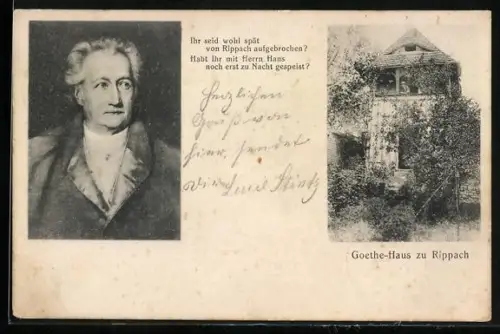 Ihr seid wohl spät
von Rippach aufgebrochen?
Habt ihr mit Herrn Hans
noch erst zu Nacht gespeist?
Herzlichen
Gruß von
hier sendet
Goethe-Haus zu Rippach